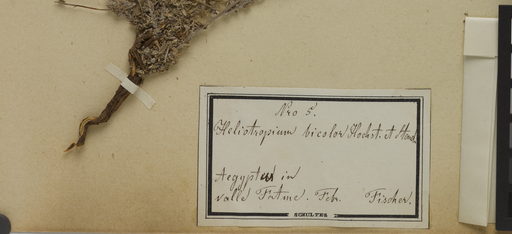 Nro 5.
Heliotropium bicolor Hochst. et Steud.
Aegyptus in
valle Fatme. Febr. Fischer.
SCHULTES